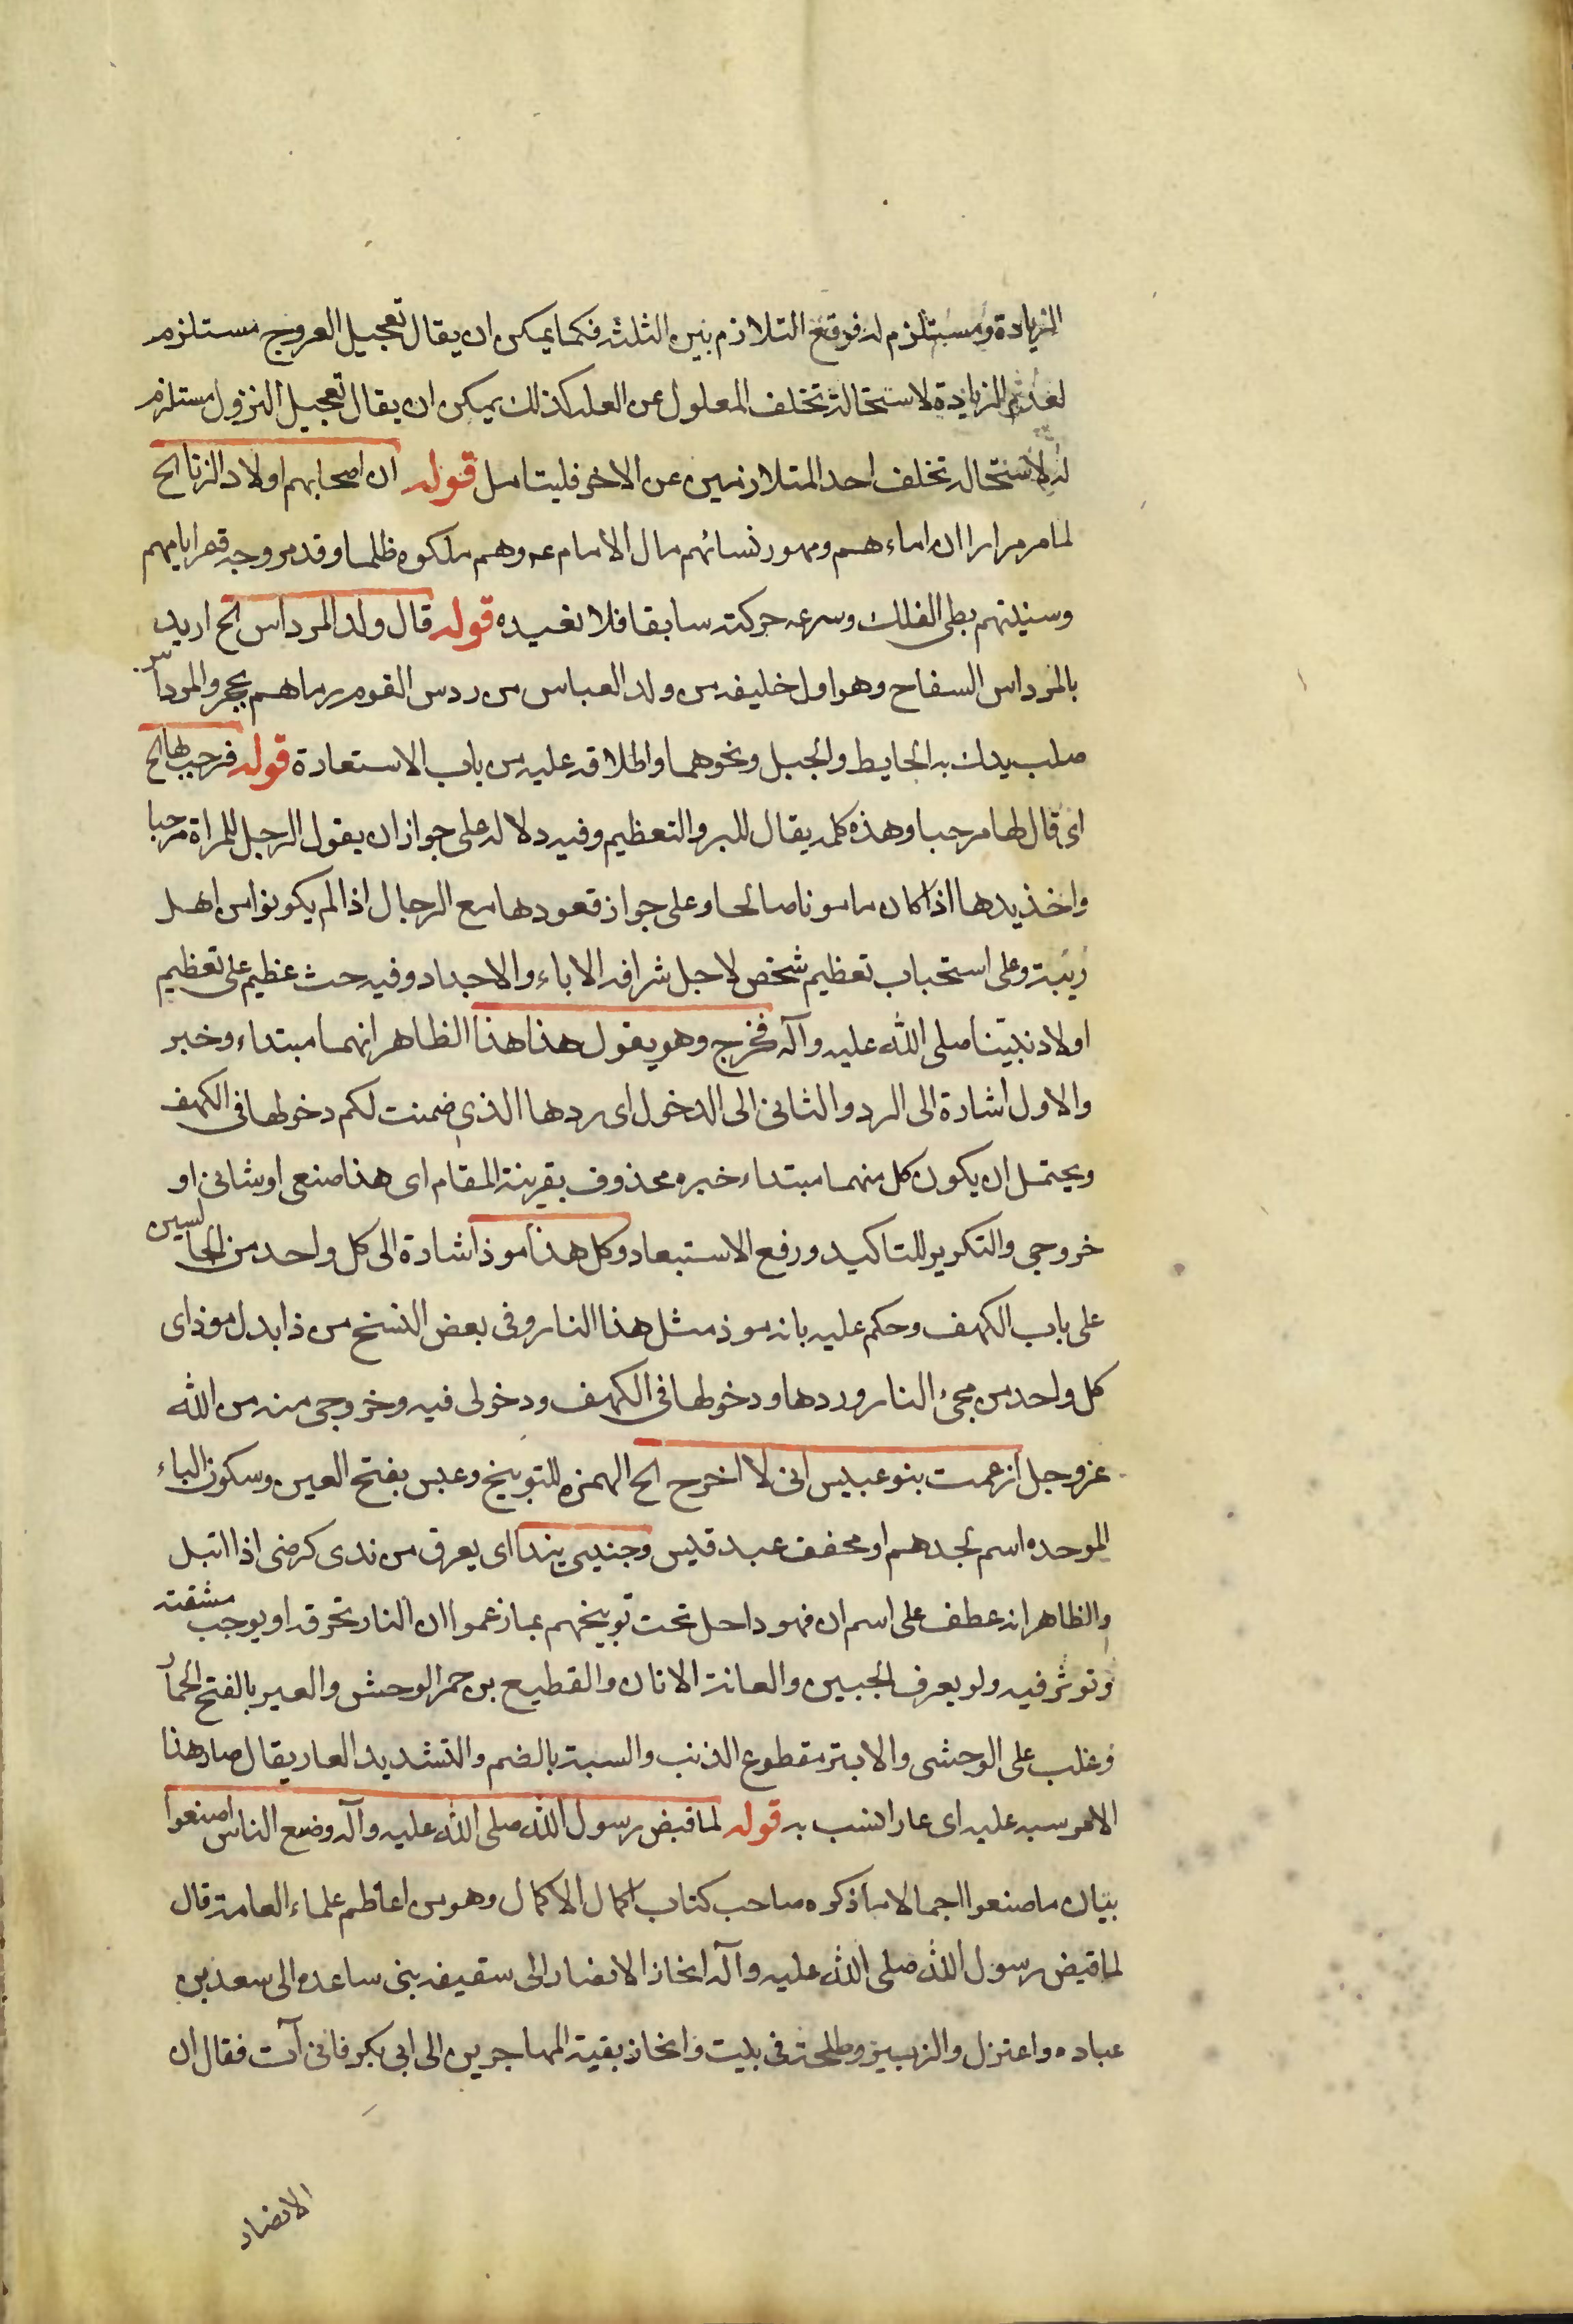 الزيادة ومستلزم له فوقع التلازم بين الثلثة فكما يمكن ان يقال تعجيل العروج مستلزم
لعدم الزيادة لاستحالة تخلف المعلول عن العلة كذلك يمكن ان يقال تعجيل النزول مستلزم
له لاستحالة تخلف احد المتلازمين عن الاخر فليتامل قوله ان اصحابهم اولاد الزنا الخ
لما مر مرارا ان اماءهم ومهور نسائهم مال الامام عم وهم ملكوه ظلما وقد مر وجه قصر ايامهم
وسنيلتهم بطى الفلك وسرعة حركته سابقا فلا نعيده قوله قال ولد المرداس الخ اريد
بالمرداس السفاح وهو اول خليفه من ولد العباس من ردس القوم رماهم بحجر والمرداس
صلب يدك به الحايط والجبل ونحوهما واطلاقه عليه من باب الاستعارة قوله فرحب لها الخ
اى قال لها مرحبا وهذه كلمة يقال للبر والتعظيم وفيه دلالة على جواز ان يقول الرجل للمراة مرحبا
واخذ يدها اذا كان مامونا صالحا وعلى جواز قعودها مع الرجال اذا لم يكونوا من اهل
ريبة وعلى استحباب تعظيم شخص لاجل شرافة الاباء والاجداد وفيه حث عظيم على تعظيم
اولاد نبيّنا صلى الله عليه وآله فخرج وهو يقول هذا هذا الظاهر انهما مبتداء وخبر
والاول اشارة الى الرد والثانى الى الدخول اى ردها الذى ضمنت لكم دخولها فى الكهف
ويحتمل ان يكون كل منهما مبتداء خبره محذوف بقرينة المقام اى هذا صنعى اوشانى او
خروجى والتكرير للتاكيد ورفع الاستبعاد وكل هذا موذ اشارة الى كل واحد من الجالسين
على باب الكهف وحكم عليه بانه موذ مثل هذا النار وفى بعض النسخ من ذا بدل موذ اى
كل واحد من مجىء النار وردها ودخولها فى الكهف ودخولى فيه وخروجى منه من الله
عزوجل ازعمت بنو عبس انى لا اخرج الخ الهمزه للتوبيخ وعبس بفتح العين وسكون الباء
الموحده اسم لجدهم او مخفف عبد قيس وجنبينى يندا اى يعرق من ندى كرضى اذا ابتل
والظاهر انه عطف على اسم ان فهو داخل تحت توبيخهم بما زعموا ان النار تحرقه او يوجب مشقته
وتوثر فيه ولو يعرق الجبين والعانة الاتان والقطيع من حمر الوحش والعير بالفتح الحمار
وغلب على الوحشى والابتر مقطوع الذنب والسبة بالضم والتشديد العار يقال صار هذا
الامر سبه عليه اى عارا نسب به قوله لما قبض رسول الله صلى الله عليه وآله وضع الناس اصنعوا
بيان ما صنعوا اجمالا ما ذكره صاحب كتاب اكمال الاكمال وهو من اعاظم علماء العامة قال
لما قبض رسول الله صلى الله عليه وآله انحاز الانصار الى سقيفه بنى ساعده الى سعد بن
عباده واعتزل والزبير وطلحة فى بيت وانحاز بقية المهاجرين الى ابى بكر فاتى آت فقال ان
الانصار